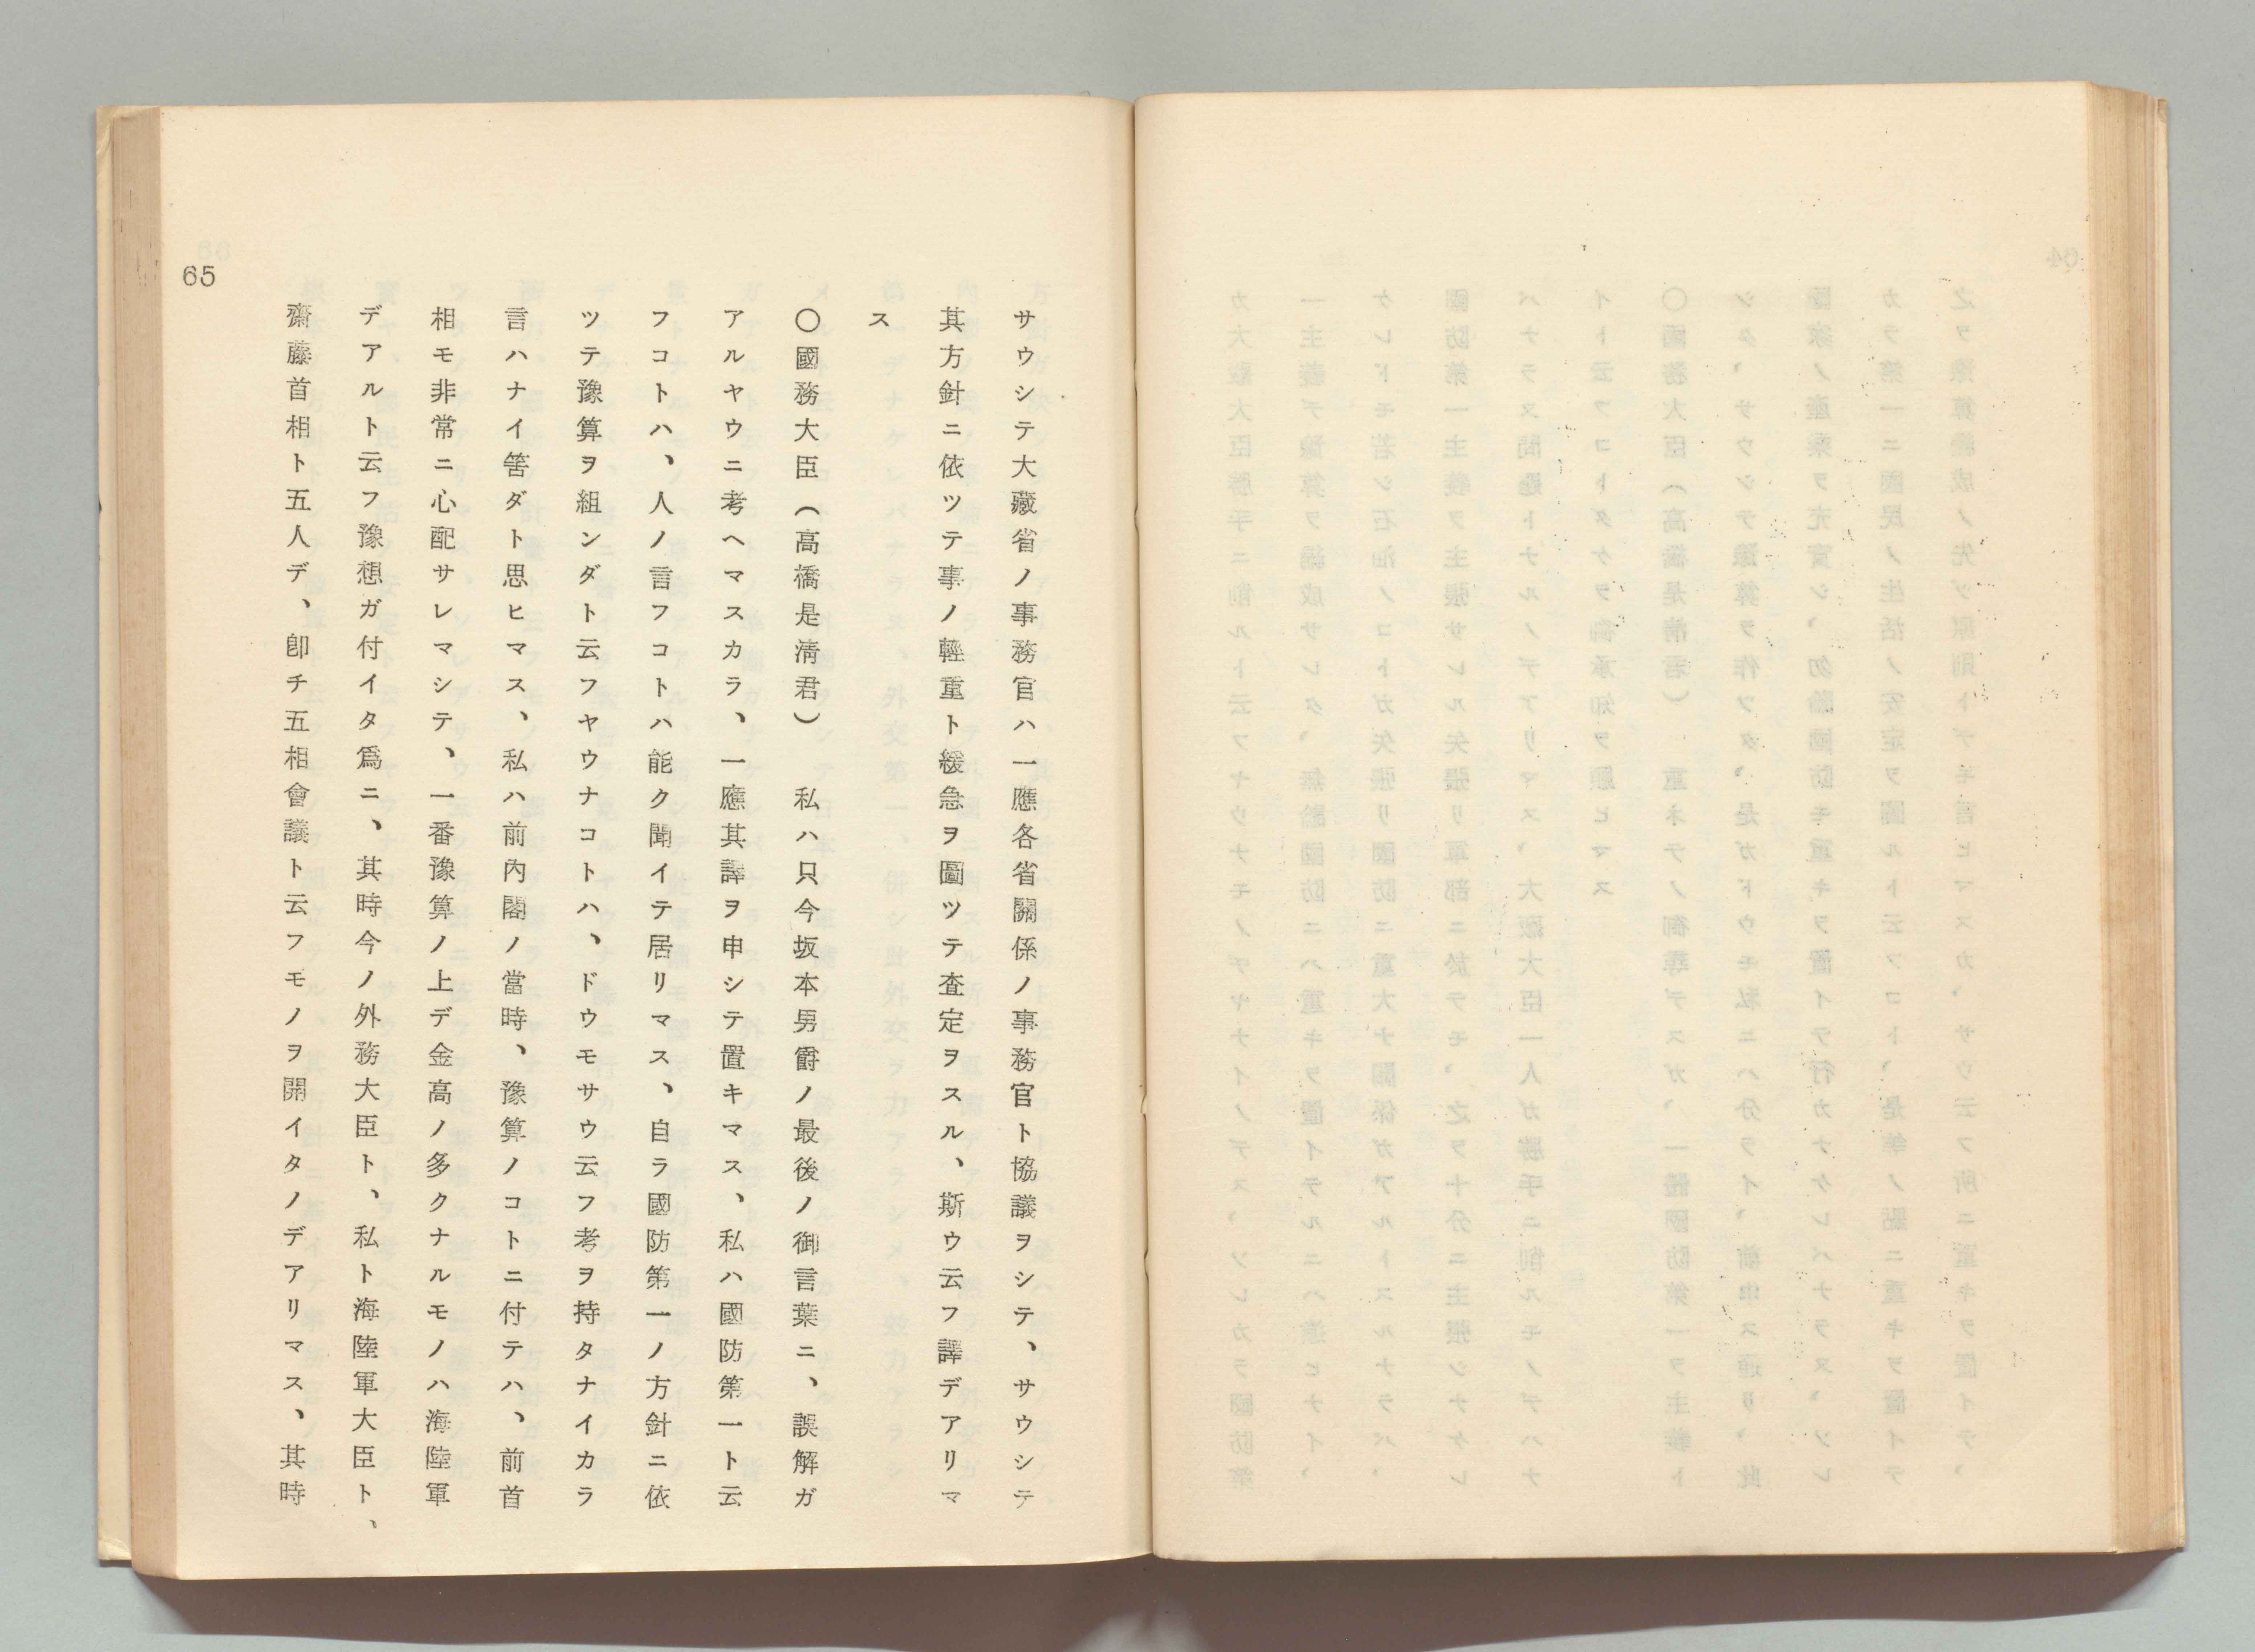 サウシテ大藏省ノ事務官ハ一應各省關係ノ事務官ト協議ヲシテ、サウシテ
其方針ニ依ツテ事ノ輕重ト緩急ヲ圖ツテ査定ヲスル、斯ウ云フ譯デアリマ
ス
〇國務大臣（高橋是淸君）　私ハ只今坂本男爵ノ最後ノ御言葉ニ、誤解ガ
アルヤウニ考ヘマスカラ、一應其譯ヲ申シテ置キマス、私ハ國防第一ト云
フコトハ、人ノ言フコトハ能ク聞イテ居リマス、自ラ國防第一ノ方針ニ依
ツテ豫算ヲ組ンダト云フヤウナコトハ、ドウモサウ云フ考ヲ持タナイカラ
言ハナイ筈ダト思ヒマス、私ハ前內閣ノ當時、豫算ノコトニ付テハ、前首
相モ非常ニ心配サレマシテ、一番豫算ノ上デ金高ノ多クナルモノハ海陸軍
デアルト云フ豫想ガ付イタ爲ニ、其時今ノ外務大臣ト、私ト海陸軍大臣ト、
齋藤首相ト五人デ、卽チ五相會議ト云フモノヲ開イタノデアリマス、其時
65